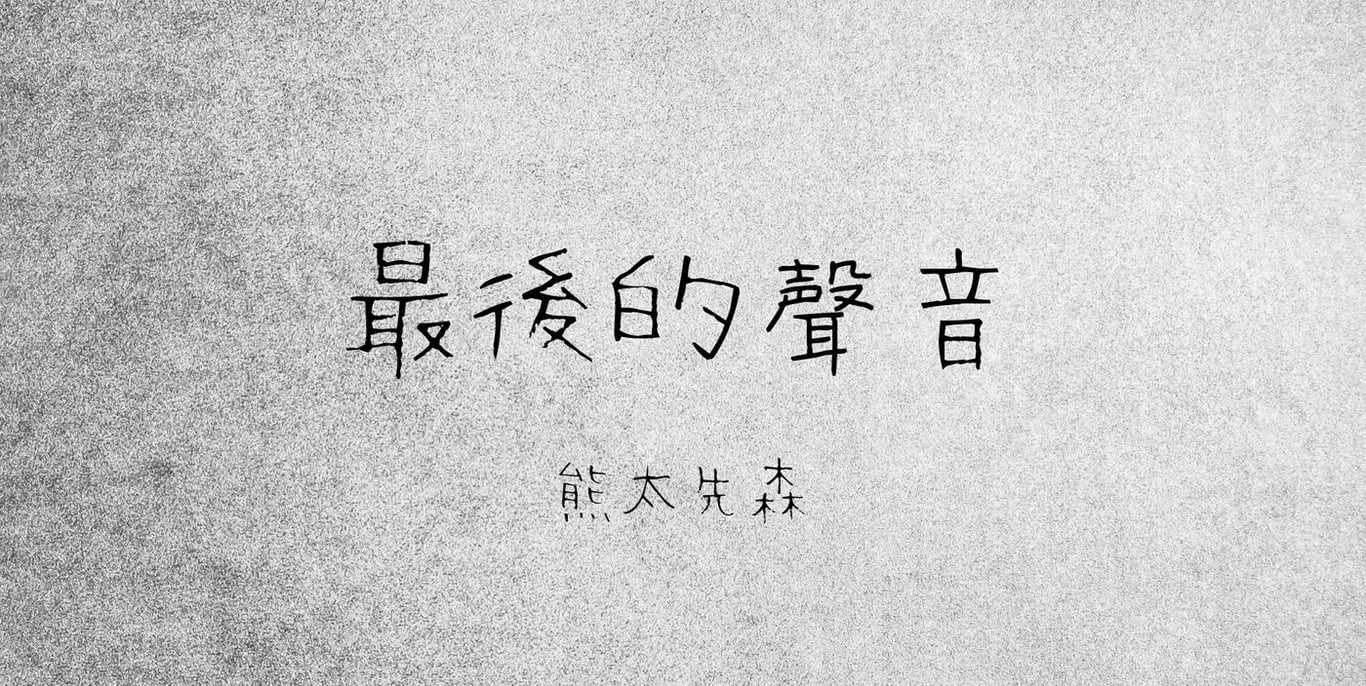 最後的聲音
熊太先森